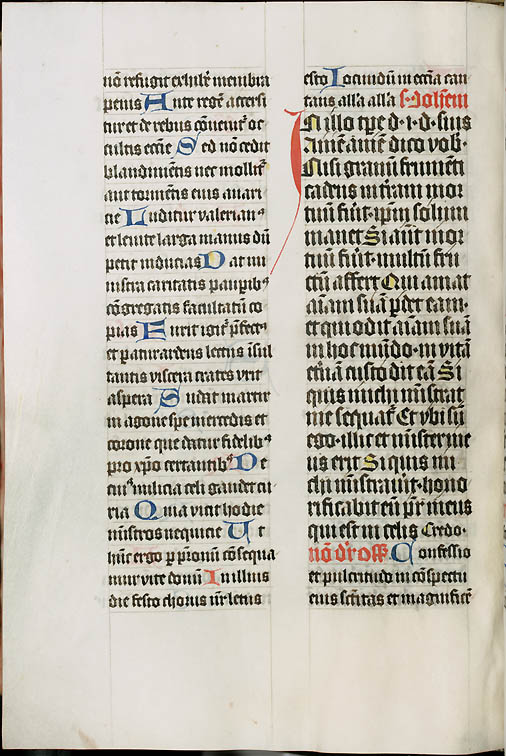 nō refugit exhibēt membra
penis Ante regē accersi
tur et de rebus cōvenit᷑ oc
cultis eccīe Sed nō cedit
blandimētis nec mollit᷑
aut tormētis eius avari
cie Luditur valerianꝰ
et levite larga manus dū
petit inducias Dat mi
nistra caritatis paupibꝰ
cōgregatis facultatū co
pias Furit igit᷑ p̄fectꝰ
et paratur ardens lectus īsul
tantis viscera crates urit
aspera Sudat martir
in agone spe mercedis et
corone que datur fidelibꝰ
pro xp̄o certantibꝰ De
cuiꝰ milicia celi gaudet cu
ria Quia vicit hodie
ministros nequicie Ut
hūc ergo p p̄ronū cōsequa
mur vite donū In illius
die festo chorus n̄r letus
esto Iocundū in eccīa can
tans all'a all'a S. Joh'em
In illo tp̄e d. i. d. suis
Amē amē dico vob.
Nisi granū frumēti
cadens in t̄ram mor
tuū fūit. ipm̄ solum
manet Si aūt mor
tuū fūit. multū fru
ctū affert Qui amat
aīam suā p̄det eam.
et qui odit aīam suā
in hoc mūdo. in vitā
et̄nā custodit eā Si
quis michi mīstrat
me sequat᷑ Et ubi sū
ego. illic et mīster me
us erit Si quis mi
chi mīstravit. hono
rificabit eū pr̄ meus
qui est in celis Credo.
nō dr̄ Off. Confessio
et pulcritudo in cōspectu
eius sc̄titas et magnificē